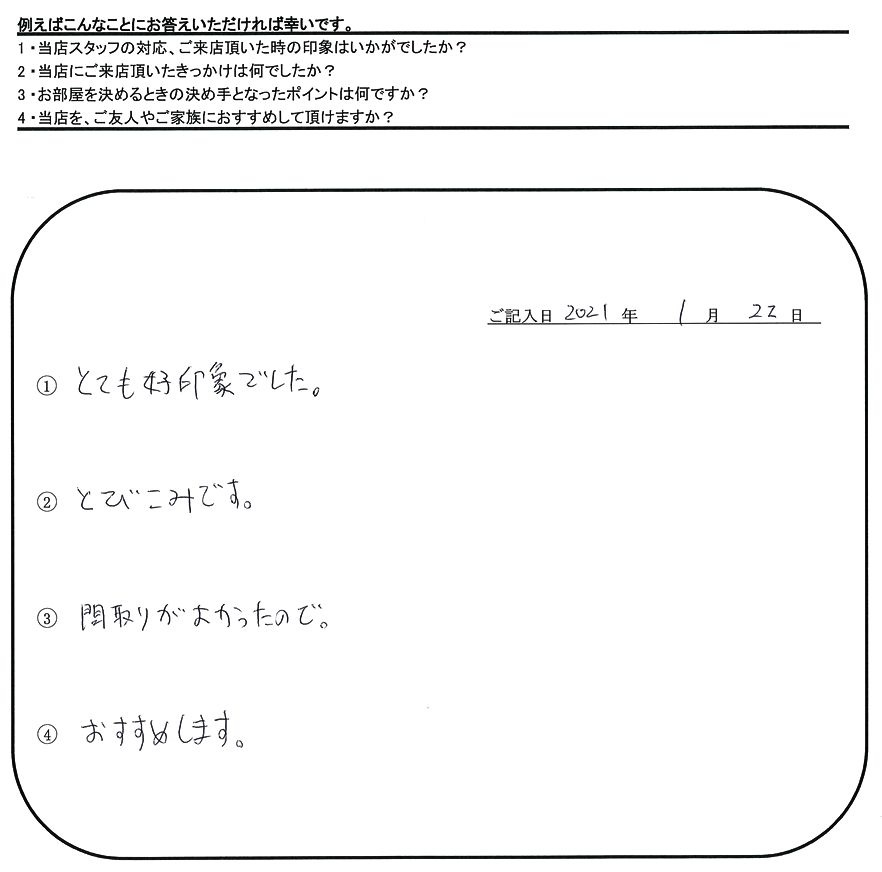 例えばこんなことにお答えいただければ幸いです。
1・当店スタッフの対応、ご来店頂いた時の印象はいかがでしたか？
2・当店にご来店頂いたきっかけは何でしたか？
3・お部屋を決めるときの決め手となったポイントは何ですか？
4・当店を、ご友人やご家族におすすめして頂けますか？
ご記入日 2021 年 1 月 22 日
① とても好印象でした。
② とびこみです。
③ 間取りがよかったので。
④ おすすめします。